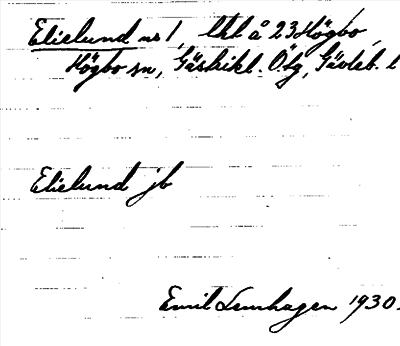 Elielund nr 1, lht å 23 Högbo,
Högbo sn, Gästrikl. Ö. fg, Gävleb. l
Elielund jb
Emil Lemhagen 1930.